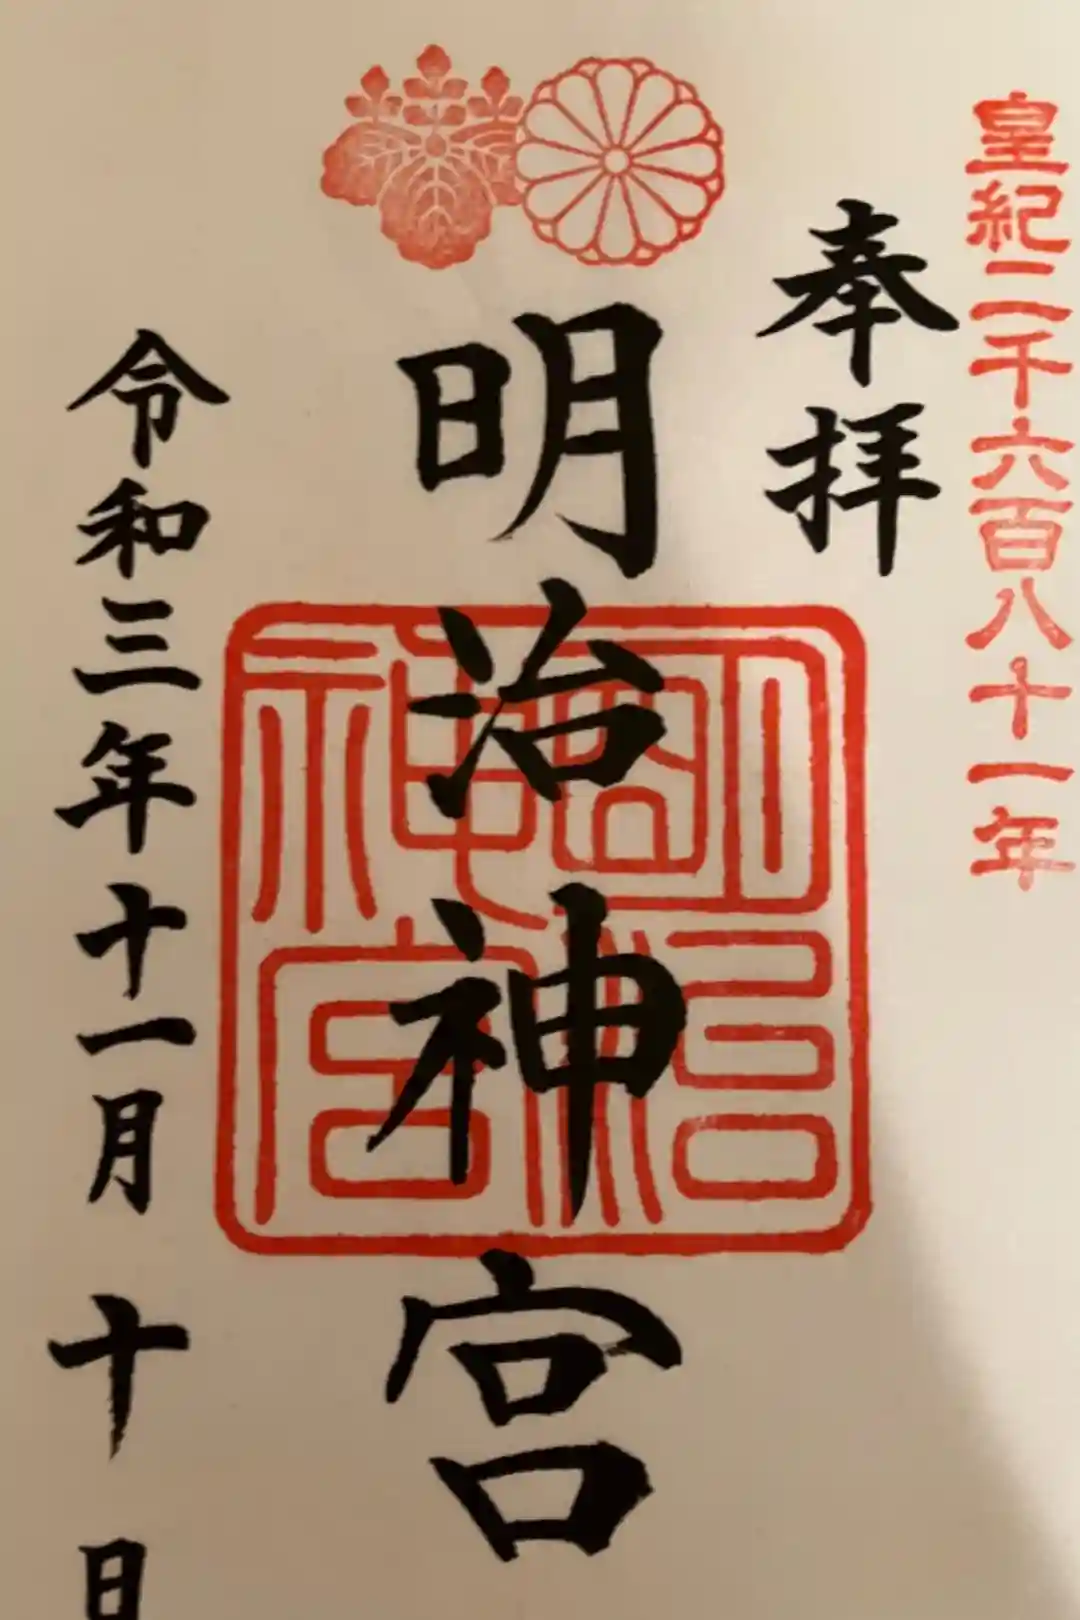 皇紀二千六百八十一年
奉拝
明治神宮
明治神宮
令和三年十一月十日